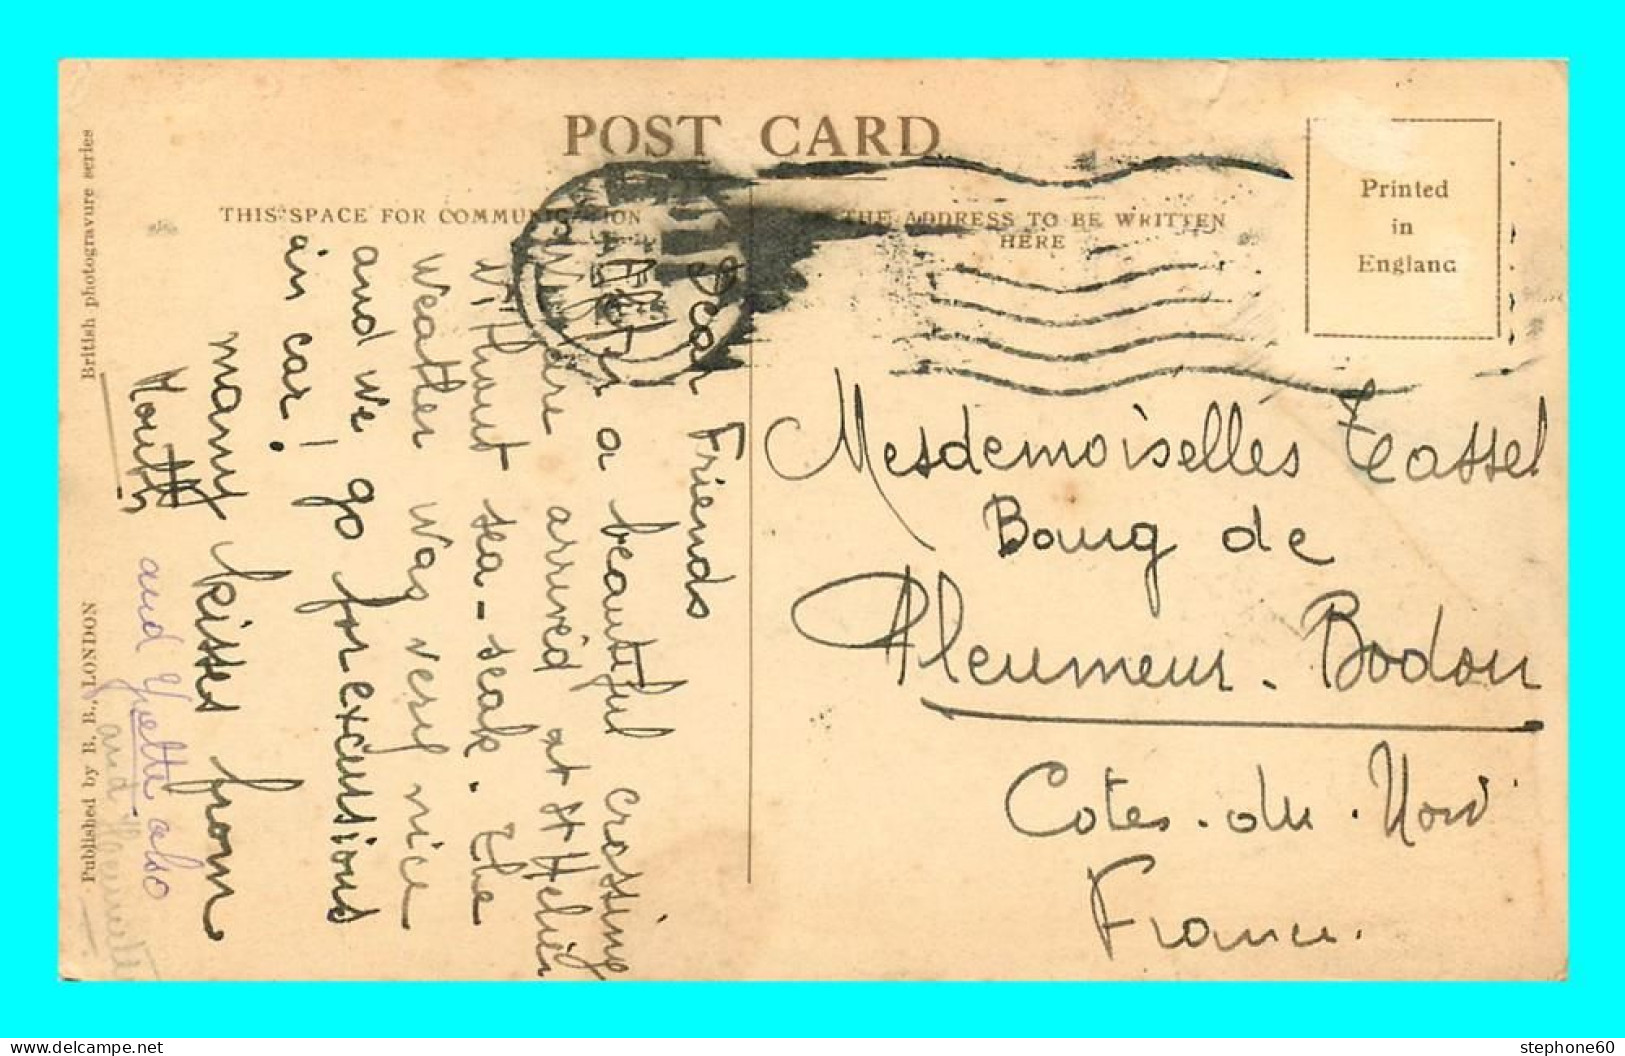 POST CARD
THIS SPACE FOR COMMUNICATION
THE ADDRESS TO BE WRITTEN
HERE
Printed
in
England
British photogravure series
Published by B. B., LONDON
Dear Friends
After a beautiful crossing
we are arrived at St Helier
without sea-seak. The
weather was very nice
and we go for excursions
in car!
many kisses from
and Yvette also
and
Mesdemoiselles Tassel
Bourg de
Pleumeur-Bodou
Cotes-du-Nord
France.
stephone60